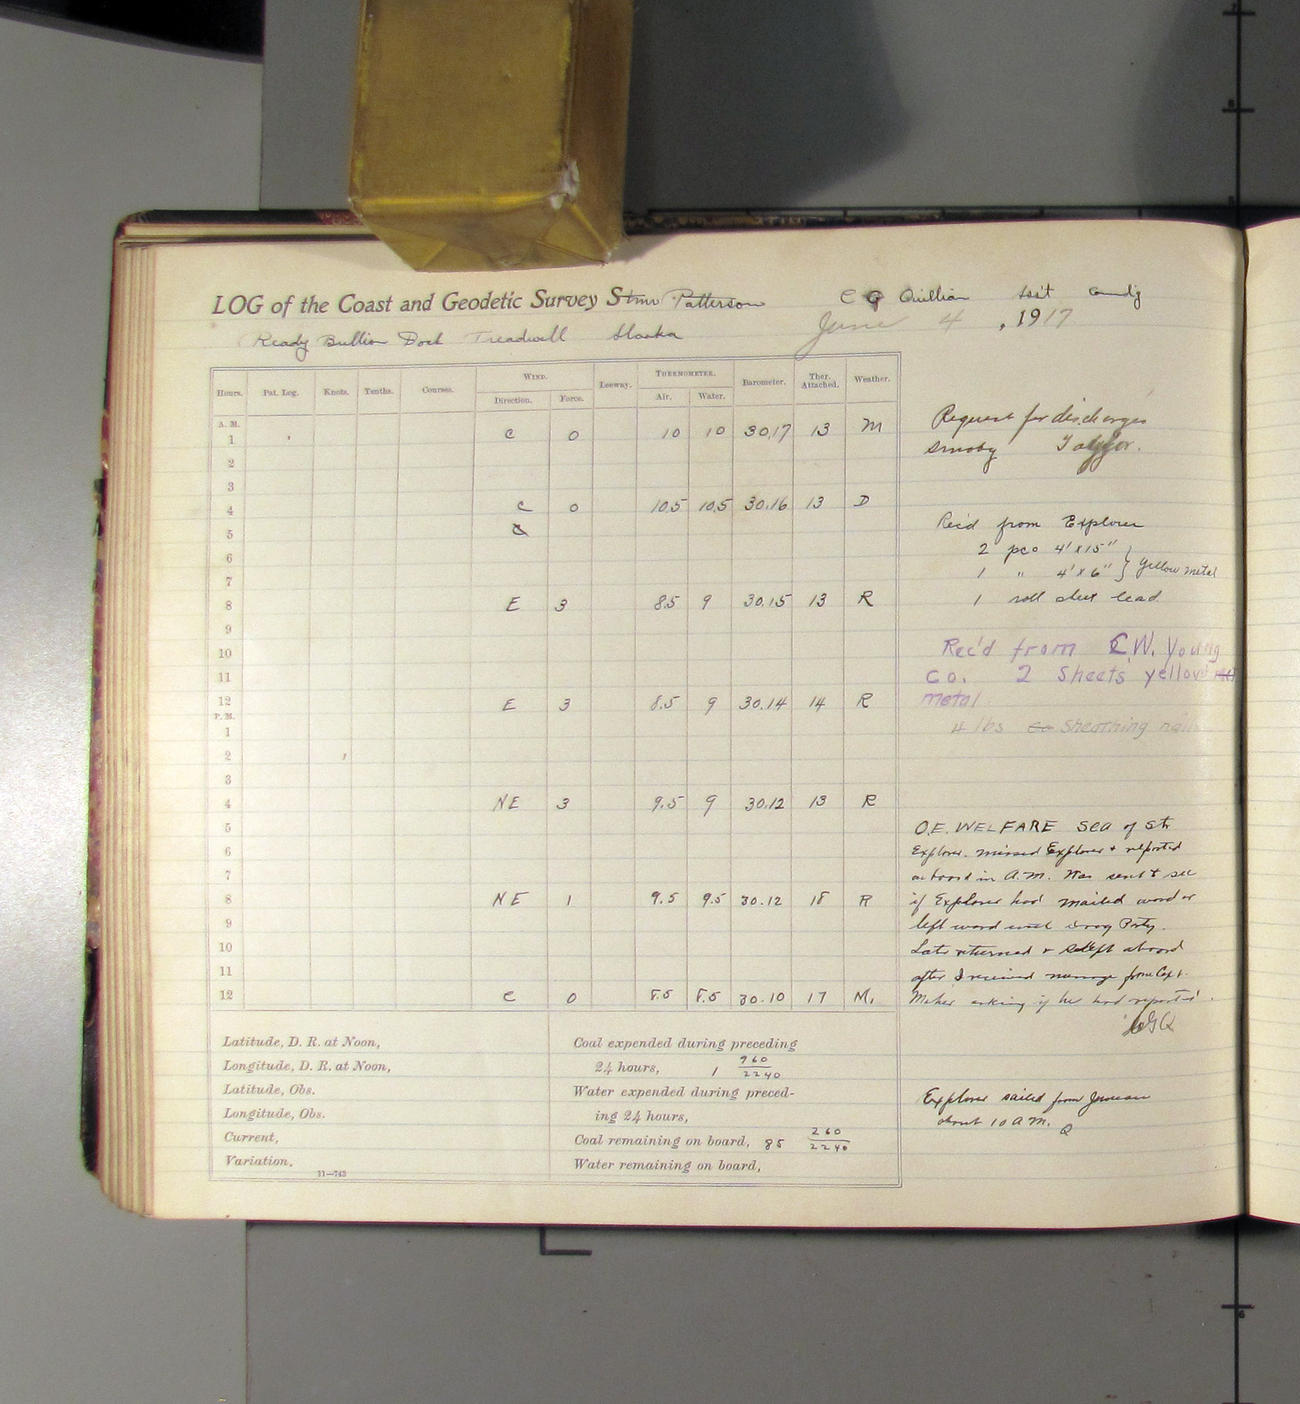 LOG of the Coast and Geodetic Survey Stmr Patterson C G Quillian Ass't Comdg
Ready Bullion Dock Treadwell Alaska June 4, 1917
Hours. Pat. Log. Knots. Tenths. Courses. WIND. Leeway. THERMOMETER. Barometer. Ther. Attached. Weather.
Direction. Force. Air. Water.
A. M.
1 C 0 10 10 30.17 13 M
2
3
4 C 0 10.5 10.5 30.16 13 D
5
6
7
8 E 3 8.5 9 30.15 13 R
9
10
11
12 E 3 8.5 9 30.14 14 R
P. M.
1
2
3
4 NE 3 9.5 9 30.12 13 R
5
6
7
8 NE 1 9.5 9.5 30.12 18 R
9
10
11
12 C 0 8.5 8.5 30.10 17 M.
Latitude, D. R. at Noon,
Longitude, D. R. at Noon,
Latitude, Obs.
Longitude, Obs.
Current,
Variation,
11—743
Coal expended during preceding
24 hours, 1 960/2240
Water expended during preced-
ing 24 hours,
Coal remaining on board, 85 260/2240
Water remaining on board,
Request for discharges
Smoby Taylor.
Rec'd from Explorer
2 pcs 4' x 15"
1 " 4' x 6" } yellow metal
1 roll sheet lead
Rec'd from C.W. Young
Co. 2 Sheets yellow
metal
4 lbs Sheathing nails
O.E. WELFARE sea of Str
Explorer. missed Explorer + reported
on board in A.M. Was sent to see
if Explorer had mailed word or
left word with Drag Party.
Later returned + slept aboard
after I received message from Capt.
Maher asking if he had reported.
CGQ
Explorer sailed from Juneau
about 10 A M. Q